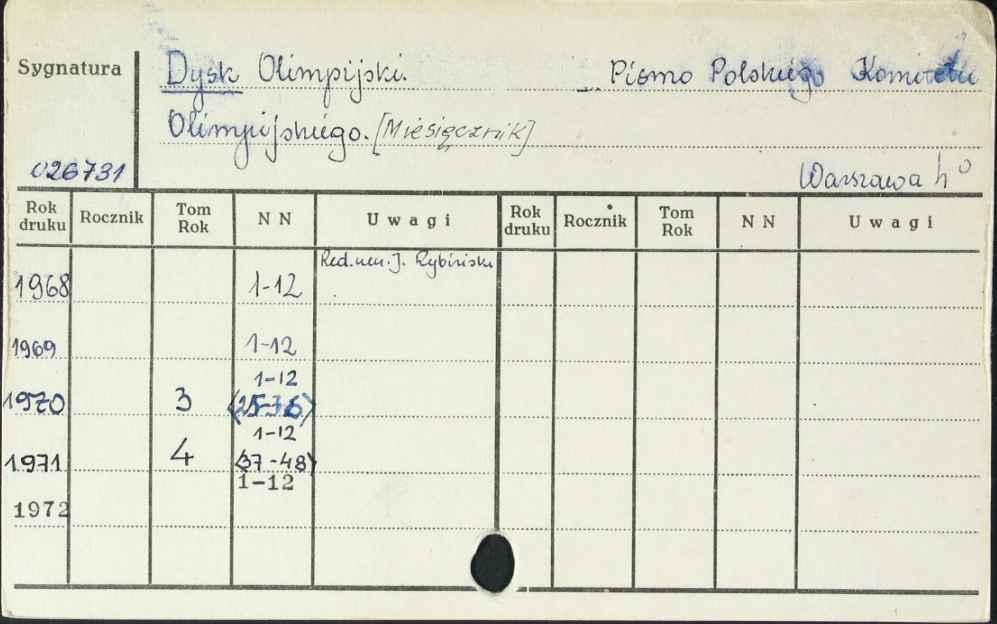 Sygnatura
Dysk Olimpijski. _ Pismo Polskiego Komitetu
Olimpijskiego. [Miesięcznik]
026731
Warszawa 4°
Rok druku Rocznik Tom Rok N N Uwagi Rok druku Rocznik Tom Rok N N Uwagi
Red. nacz. J. Rybiński
1968 1-12
1969 1-12
1-12
1970 3 <25-36>
1-12
1971 4 <37-48>
1-12
1972